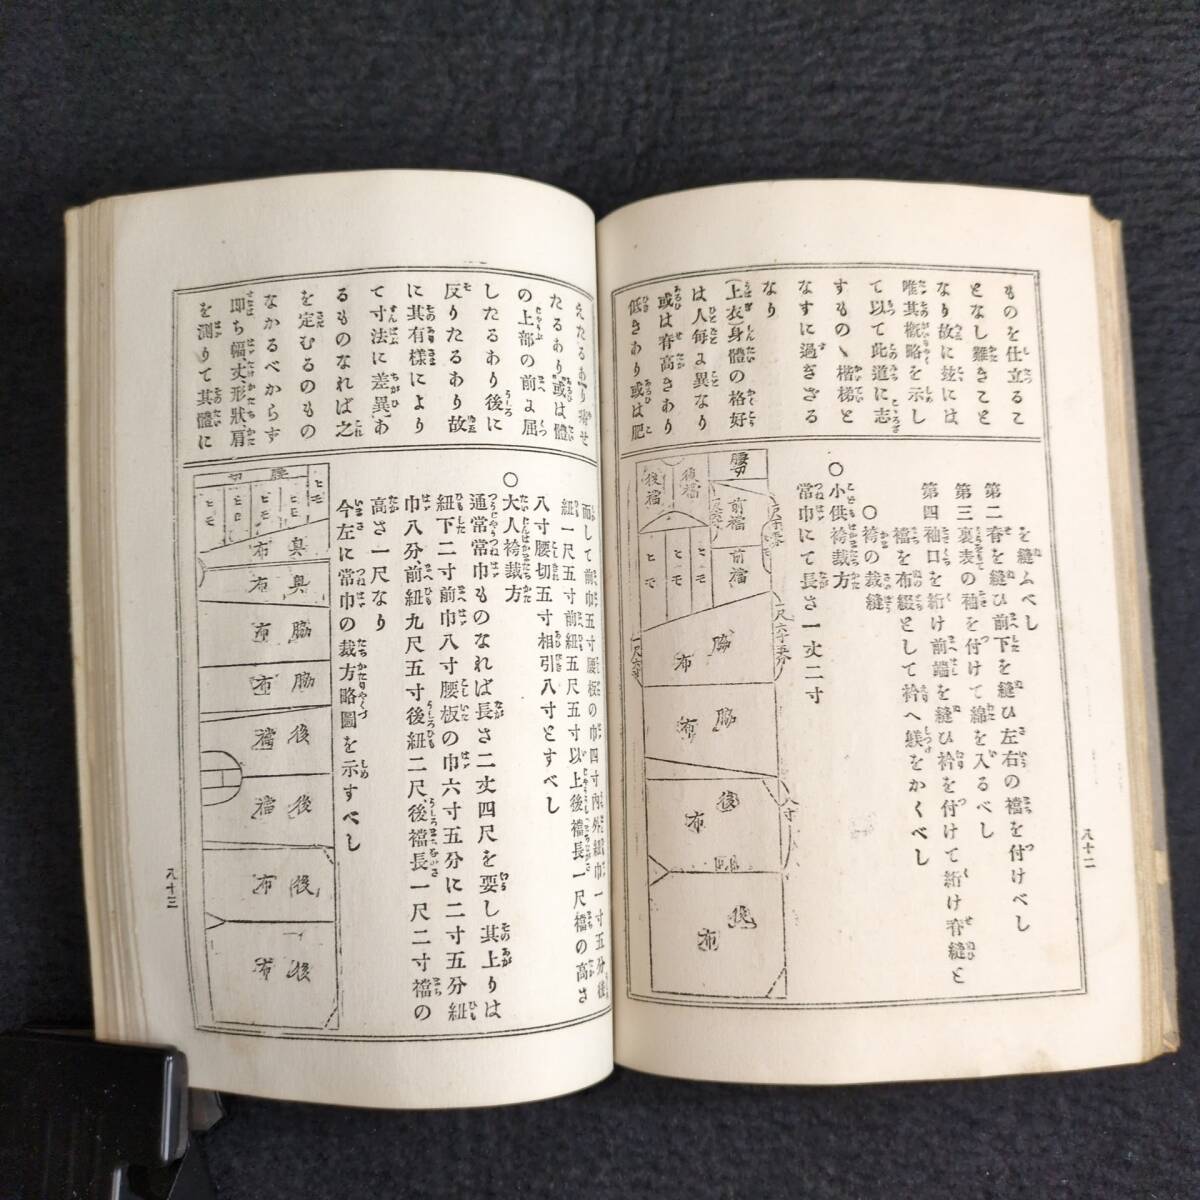 ものを仕立るこ
となし難きことと
なり故に玆には
唯其概略を示し
て以て此道に志
すもの丶楷梯と
なすに過ぎざる
なり
(上衣)身體の格好
は人每よ異なり
或は脊高きあり
低きあり或は肥
を縫ムべし
第二 脊を縫ひ前下を縫ひ左右の襠を付けべし
第三 裏表の袖を付けて綿を入るべし
第四 袖口を絎け前端を縫ひ衿を付けて絎け脊縫と
襠を布綴として衿へ躾をかくべし
○袴の裁縫
○小供袴裁方
常巾にて長さ一丈二寸
腰切
前襠
前襠
後襠
後襠
ヒモ
ヒモ
ヒモ
一尺六寸五分
一尺六寸
脇布
脇布
八寸
後布
後布
八十二
えたるあり瘠せ
たるあり或は體
の上部の前よ屈
したるあり後に
反りたるあり故
に其有樣により
て寸法に差異あ
るものなれば之
を定むるのもの
なかるべからす
卽ち幅、丈、形狀、肩
を測りて其體に
而して前巾五寸腰板の巾四寸內外紐巾一寸五分後
紐一尺五寸前紐五尺五寸以上後襠長一尺襠の高さ
八寸腰切五寸相引八寸とすべし
○大人袴裁方
通常常巾ものなれば長さ二丈四尺を要し其上りは
紐下二寸前巾八寸腰板の巾六寸五分に二寸五分紐
巾八分前紐九尺五寸後紐二尺後襠長一尺二寸襠の
高さ一尺なり
今左に常巾の裁方略圖を示すべし
腰切
ヒモ
ヒモ
ヒモ
ヒモ
奥布
奥布
脇布
脇布
後襠
後襠
後布
後布
八十三